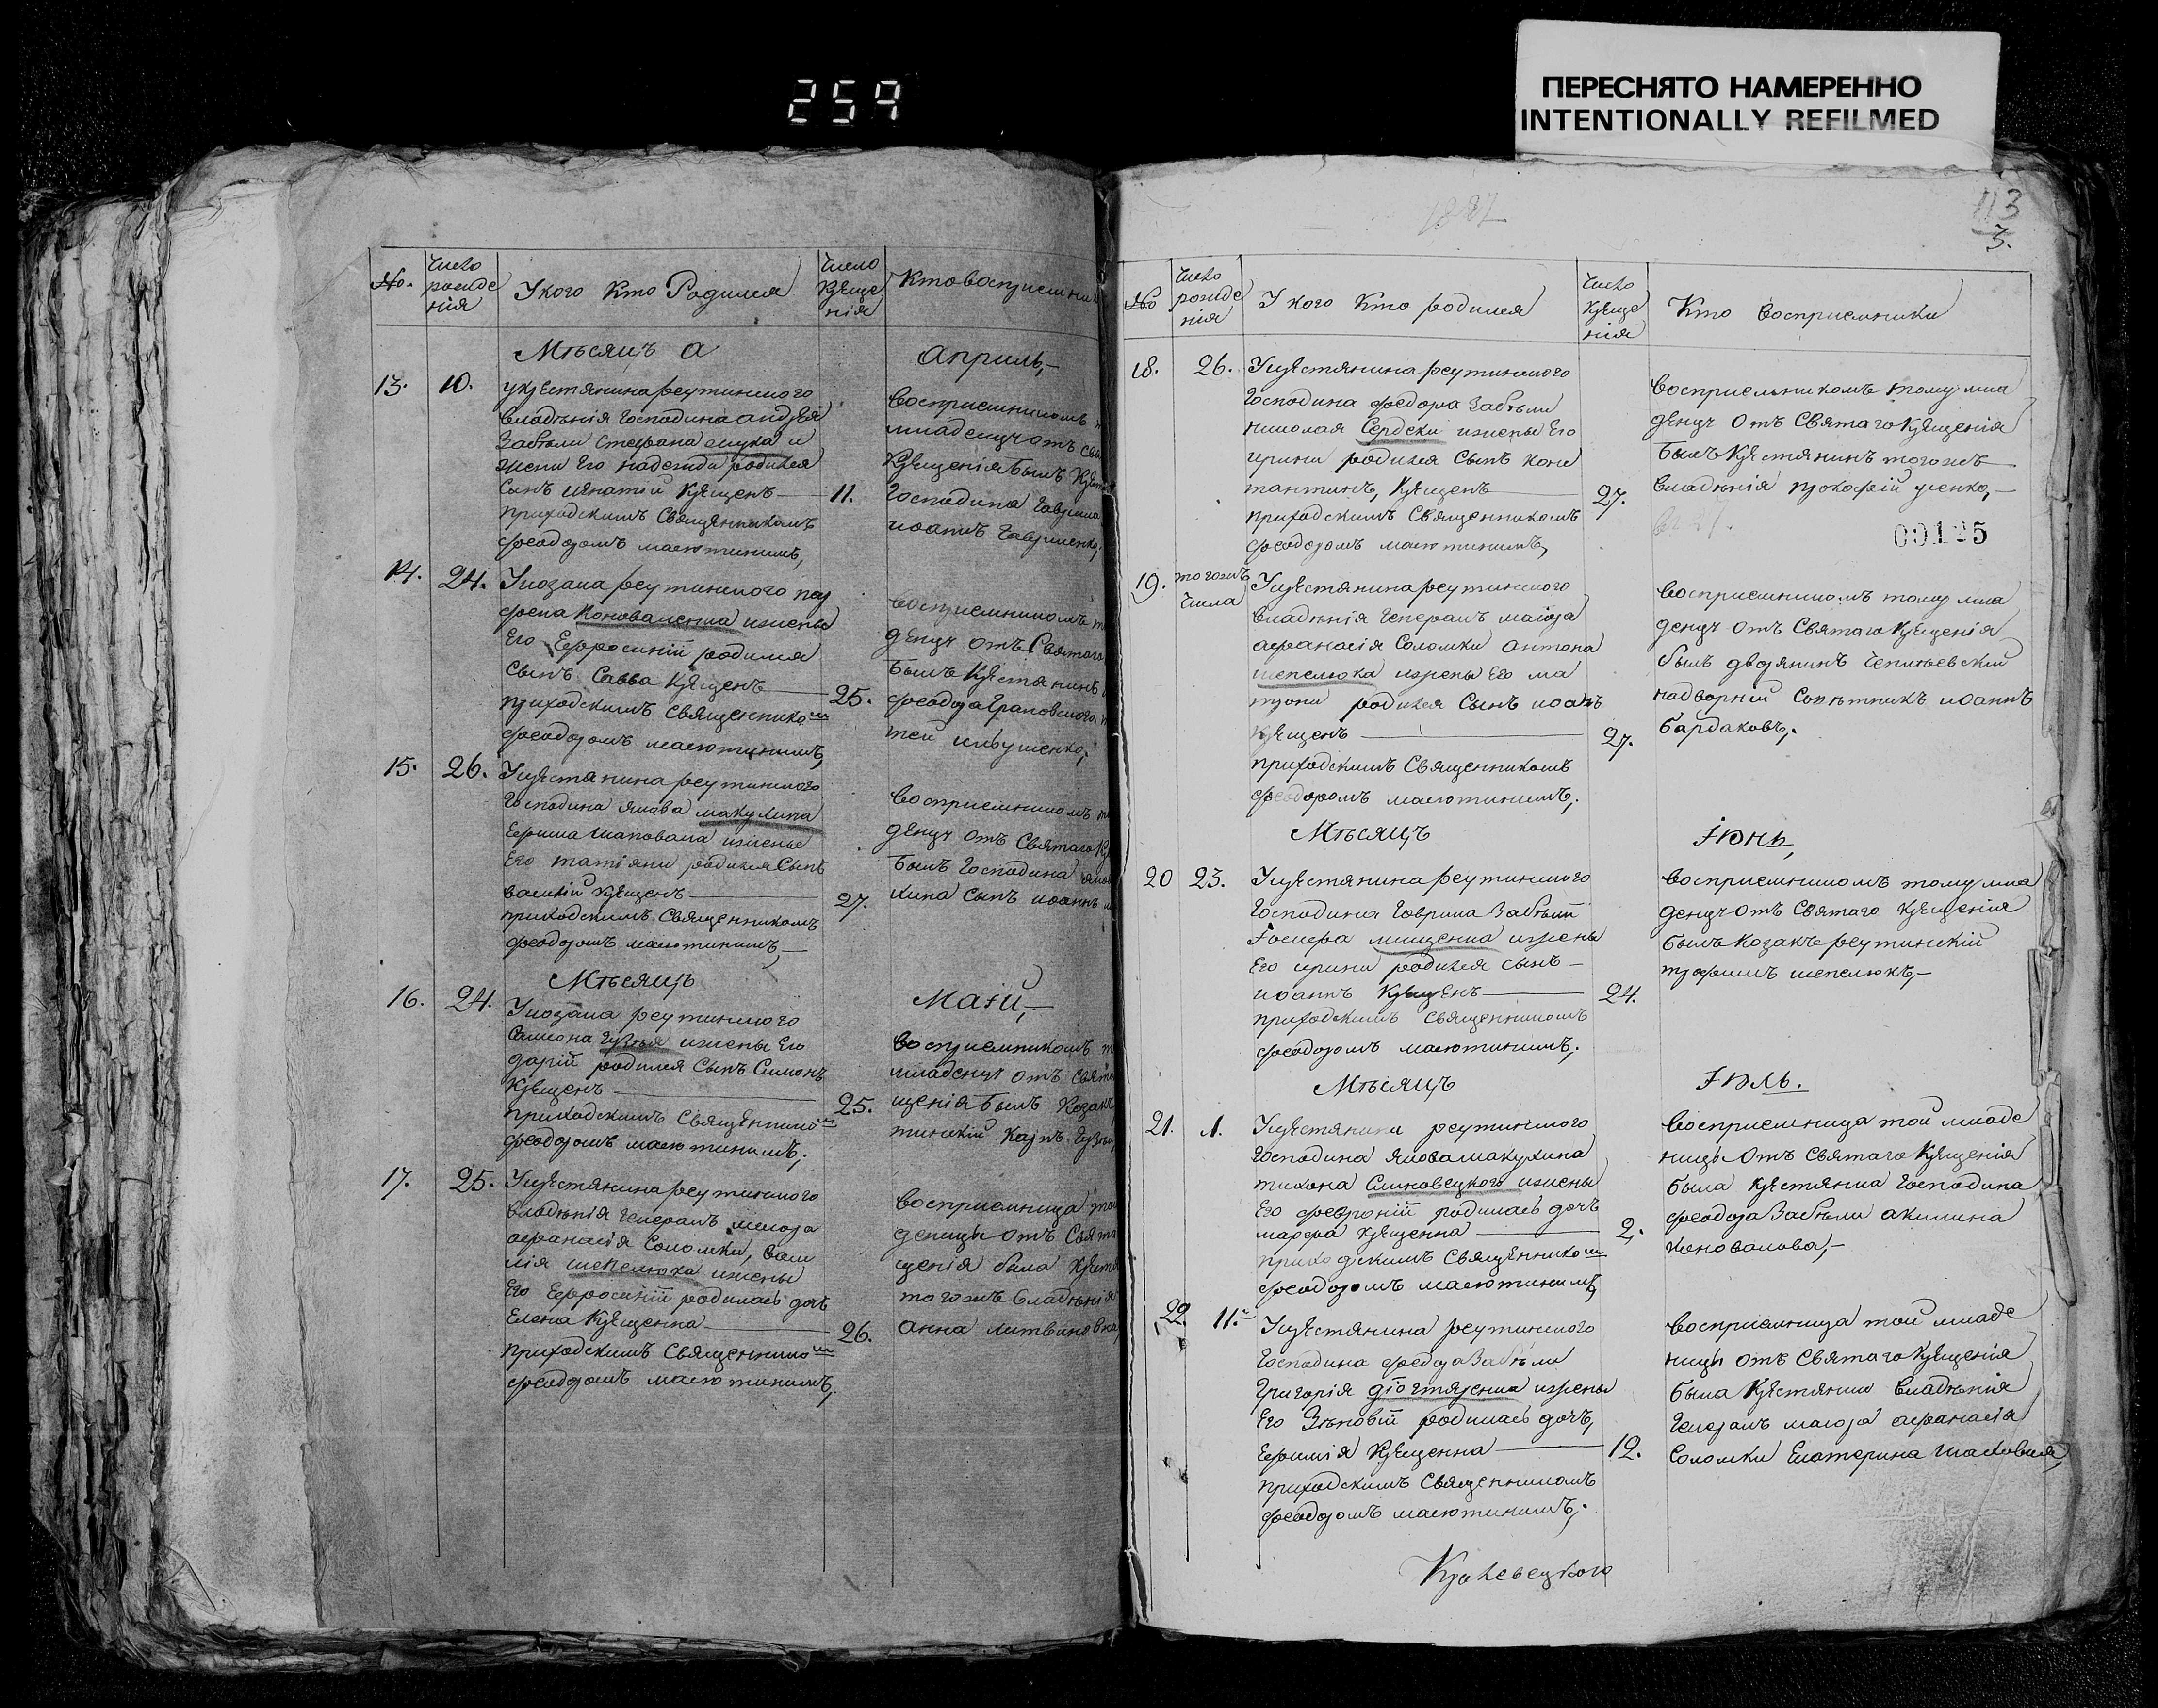 259
ПЕРЕСНЯТО НАМЕРЕННО
INTENTIONALLY REFILMED
113
3.
№.
Число рожде нія
У кого Кто Родился
Число Креще нія
Кто восприемни
Мѣсяцъ А
Априль,
13. 10. У крестянина реутинского
владѣнія Господина андрея
Забѣли Стефана жука и
жени Его надежди родился
Сынъ игнатій Крещенъ 11.
приходскимъ Священникомъ
феодоромъ малютинимъ,
восприемникомъ
младенцу отъ свя
Крещенія былъ Крест
Господина Гаврила
иоаннъ Гавриленко,
14. 24. У козака реутинского пар
фена Коноваленка изжены
Его Ефросиній родился
Сынъ Савва Крещенъ 25.
приходскимъ священнико м
феодоромъ малютинимъ,
восприемникомъ
денцу отъ Святаго
былъ Крестянинъ
феодора Грановского,
15. 26. У крестянина реутинского
Господина якова макухина
Ефима шаповала изжены
Его татіяни родился Сынъ
василій Крещенъ 27.
приходскимъ Священникомъ
феодоромъ малютинимъ,
восприемникомъ
денцу отъ Святаго
былъ Господина
хина Сынъ иоаннъ
Мѣсяцъ
Маій,
16. 24. У козака реутинского
Симона Гузѣя изжены Его
дарій родился Сынъ Симонъ
Крещенъ 25.
приходскимъ Священнико м
феодоромъ малютинимъ,
восприемникомъ
младенцу отъ свята
щенія былъ Козакъ
тинскій Карпъ Гузѣй,
17. 25. У крестянина реутинского
владѣнія Генералъ маіора
афанасія Соломки, васи
лія шепелюка изжены
Его Ефросиній родилась дочь
Елена Крещенна 26.
приходскимъ Священнико м
феодоромъ малютинимъ,
восприемница той
деници отъ Свята
щенія была Крест
тогожъ владѣнія
анна литвиновна
№
Число рожде нія
У кого Кто родился
Число Креще нія
Кто восприемники
18. 26. У крестянина реутинского
Господина феодора Забѣли
николая Сердеки изжены Его
ирини родился Сынъ конс
тантинъ, Крещенъ 27.
приходскимъ Священникомъ
феодоромъ малютинимъ,
восприемникомъ тому мла
денцу отъ Святаго Крещенія
былъ Крестянинъ тогожъ
владѣнія прокофій усенко,
00125
19. тогожъ числа У крестянина реутинского
владѣнія Генералъ маіора
афанасія Соломки антона
шепелюка изжены Его ма
трони родился Сынъ иоанъ
Крещенъ 27.
приходскимъ Священникомъ
феодоромъ малютинимъ,
восприемникомъ тому мла
денцу отъ Святаго Крещенія
былъ дворянинъ
надворній Совѣтникъ иоаннъ
бардаковъ,
Мѣсяцъ
Іюнь,
20 23. У крестянина реутинского
Господина Гаврила Забѣли
мищенка изжены
Его ирини родился сынъ
иоаннъ Крещенъ 24.
приходскимъ Священникомъ
феодоромъ малютинимъ,
восприемникомъ тому мла
денцу отъ Святаго Крещенія
былъ козакъ реутинскій
трофимъ шепелюкъ,
Мѣсяцъ
Іюль.
21. 1. У крестянина реутинского
Господина якова макухина
тихона Слиновецкого изжены
Его февроній родилась дочъ
марфа Крещенна 2.
приходскимъ Священнико м
феодоромъ малютинимъ,
восприемница той младе
ници отъ Святаго Крещенія
была Крестянка Господина
феодора Забѣли акилина
Коновалова,
22. 11. У крестянина реутинского
Господина феодора Забѣли
Григорія діогтяренка изжены
Его Зѣновій родилась дочъ,
Ефимія Крещенна 12.
приходскимъ Священникомъ
феодоромъ малютинимъ,
восприемница той младе
ници отъ Святаго Крещенія
была Крестянка владѣнія
Генералъ маіора афанасія
Соломки Екатерина
Кролевецкого